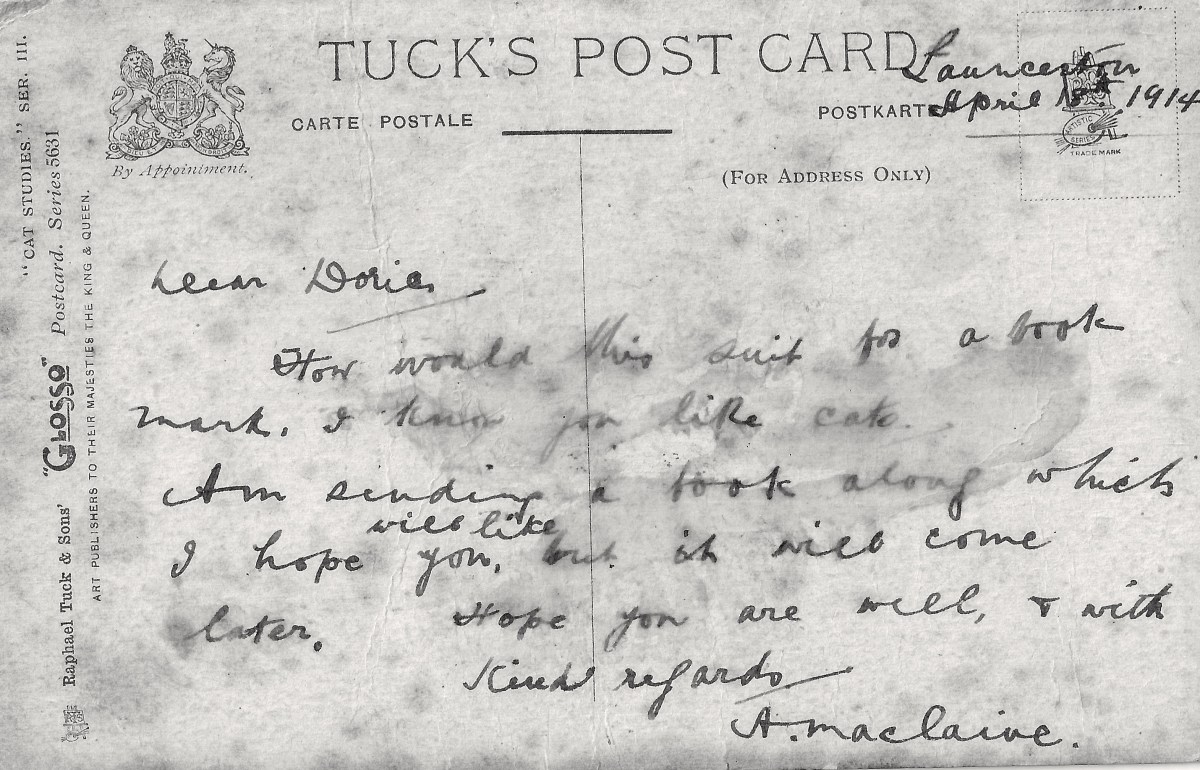 TUCK'S POST CARD
CARTE POSTALE
POSTKARTE
(FOR ADDRESS ONLY)
By Appointment.
ARTISTIC SERIES
TRADE MARK
"CAT STUDIES." SER. III.
Raphael Tuck & Sons' "GLOSSO" Postcard. Series 5631
ART PUBLISHERS TO THEIR MAJESTIES THE KING & QUEEN.
Launceston
April 1914
Dear Dorie
How would this suit for a book
mark, I know you like cats.
Am sending a book along which
will like
I hope you, but it will come
later. Hope you are well, & with
Kind regards
A. Maclaine.